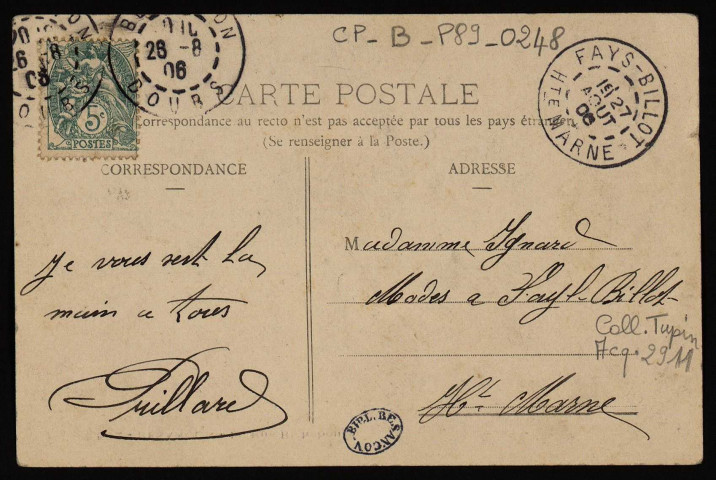 CP_B_P89_0248
BESANÇON
28 -8
06
DOUBS
5c
POSTES
FAYS-BILLOT
27
AOUT
06
HTE MARNE
CARTE POSTALE
Correspondance au recto n'est pas acceptée par tous les pays étrangers
(Se renseigner à la Poste.)
CORRESPONDANCE
ADRESSE
Je vous sert la
main a tous
Puillard
Madamme Ignard
Modes a Fayl-Billot
Hte Marne
Coll. Tupin
Acq. 2911
BIBL. BESANÇON